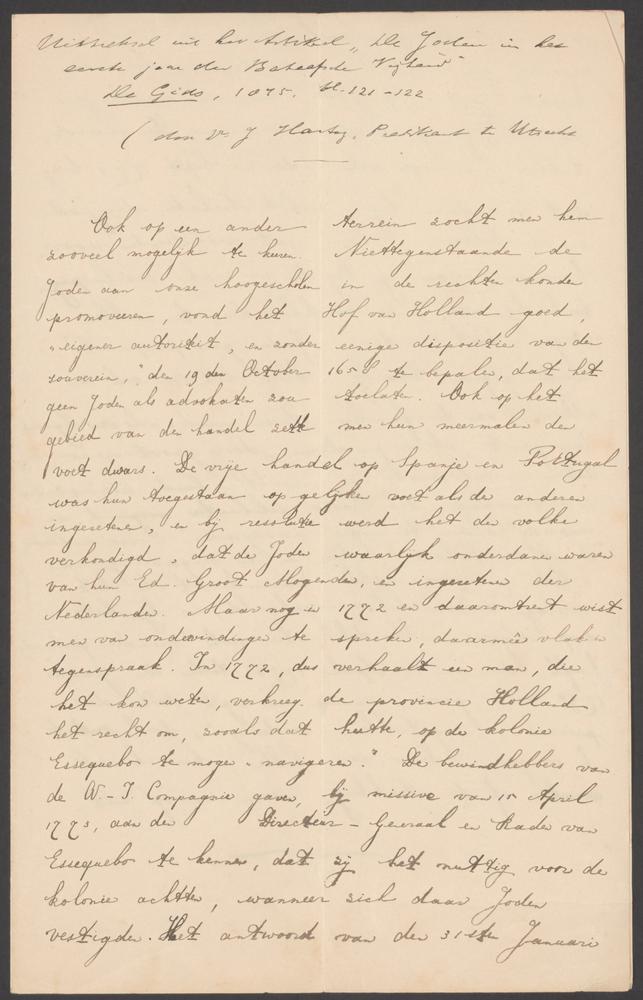 Uittreksel uit het Artikel „De Joden in het
eerste jaar der Bataafsche Vrijheid"
De Gids, 1875. bl. 121-122
(door Dr J Hartog, Predikant te Utrecht
Ook op een ander terrein zocht men hem
zooveel mogelijk te keeren. Niettegenstaande de
Joden aan onze hoogescholen in de rechten konden
promoveeren, vond het Hof van Holland goed,
"eigener autoriteit, en zonder eenige dispositie van den
souverein," den 19 den October 1658 te bepalen, dat het
geen Joden als advokaten zou toelaten. Ook op het
gebied van den handel zette men hun meermalen den
voet dwars. De vrije handel op Spanje en Portugal
was hun toegestaan op gelijken voet als de anderen
ingezetenen, en bij resolutie werd het den volke
verkondigd, dat de Joden waarlijk onderdanen waren
van hun Ed. Groot Mogenden, en ingezetenen der
Nederlanden. Maar nog in 1772 en daaromtrent wist
men van ondervindingen te spreken, daarmêe vlak in
tegenspraak. In 1772, dus verhaalt een man, die
het kon weten, verkreeg de provincie Holland
het recht om, zooals dat heette, op de kolonie
Essequebo te mogen „navigeren." De bewindhebbers van
de W.-I. Compagnie gaven, bij missive van 15 April
1773, aan den Directeur-Generaal en Raden van
Essequebo te kennen, dat zij het nuttig voor de
kolonie achtten, wanneer zich daar Joden
vestigden. Het antwoord van den 31sten Januari